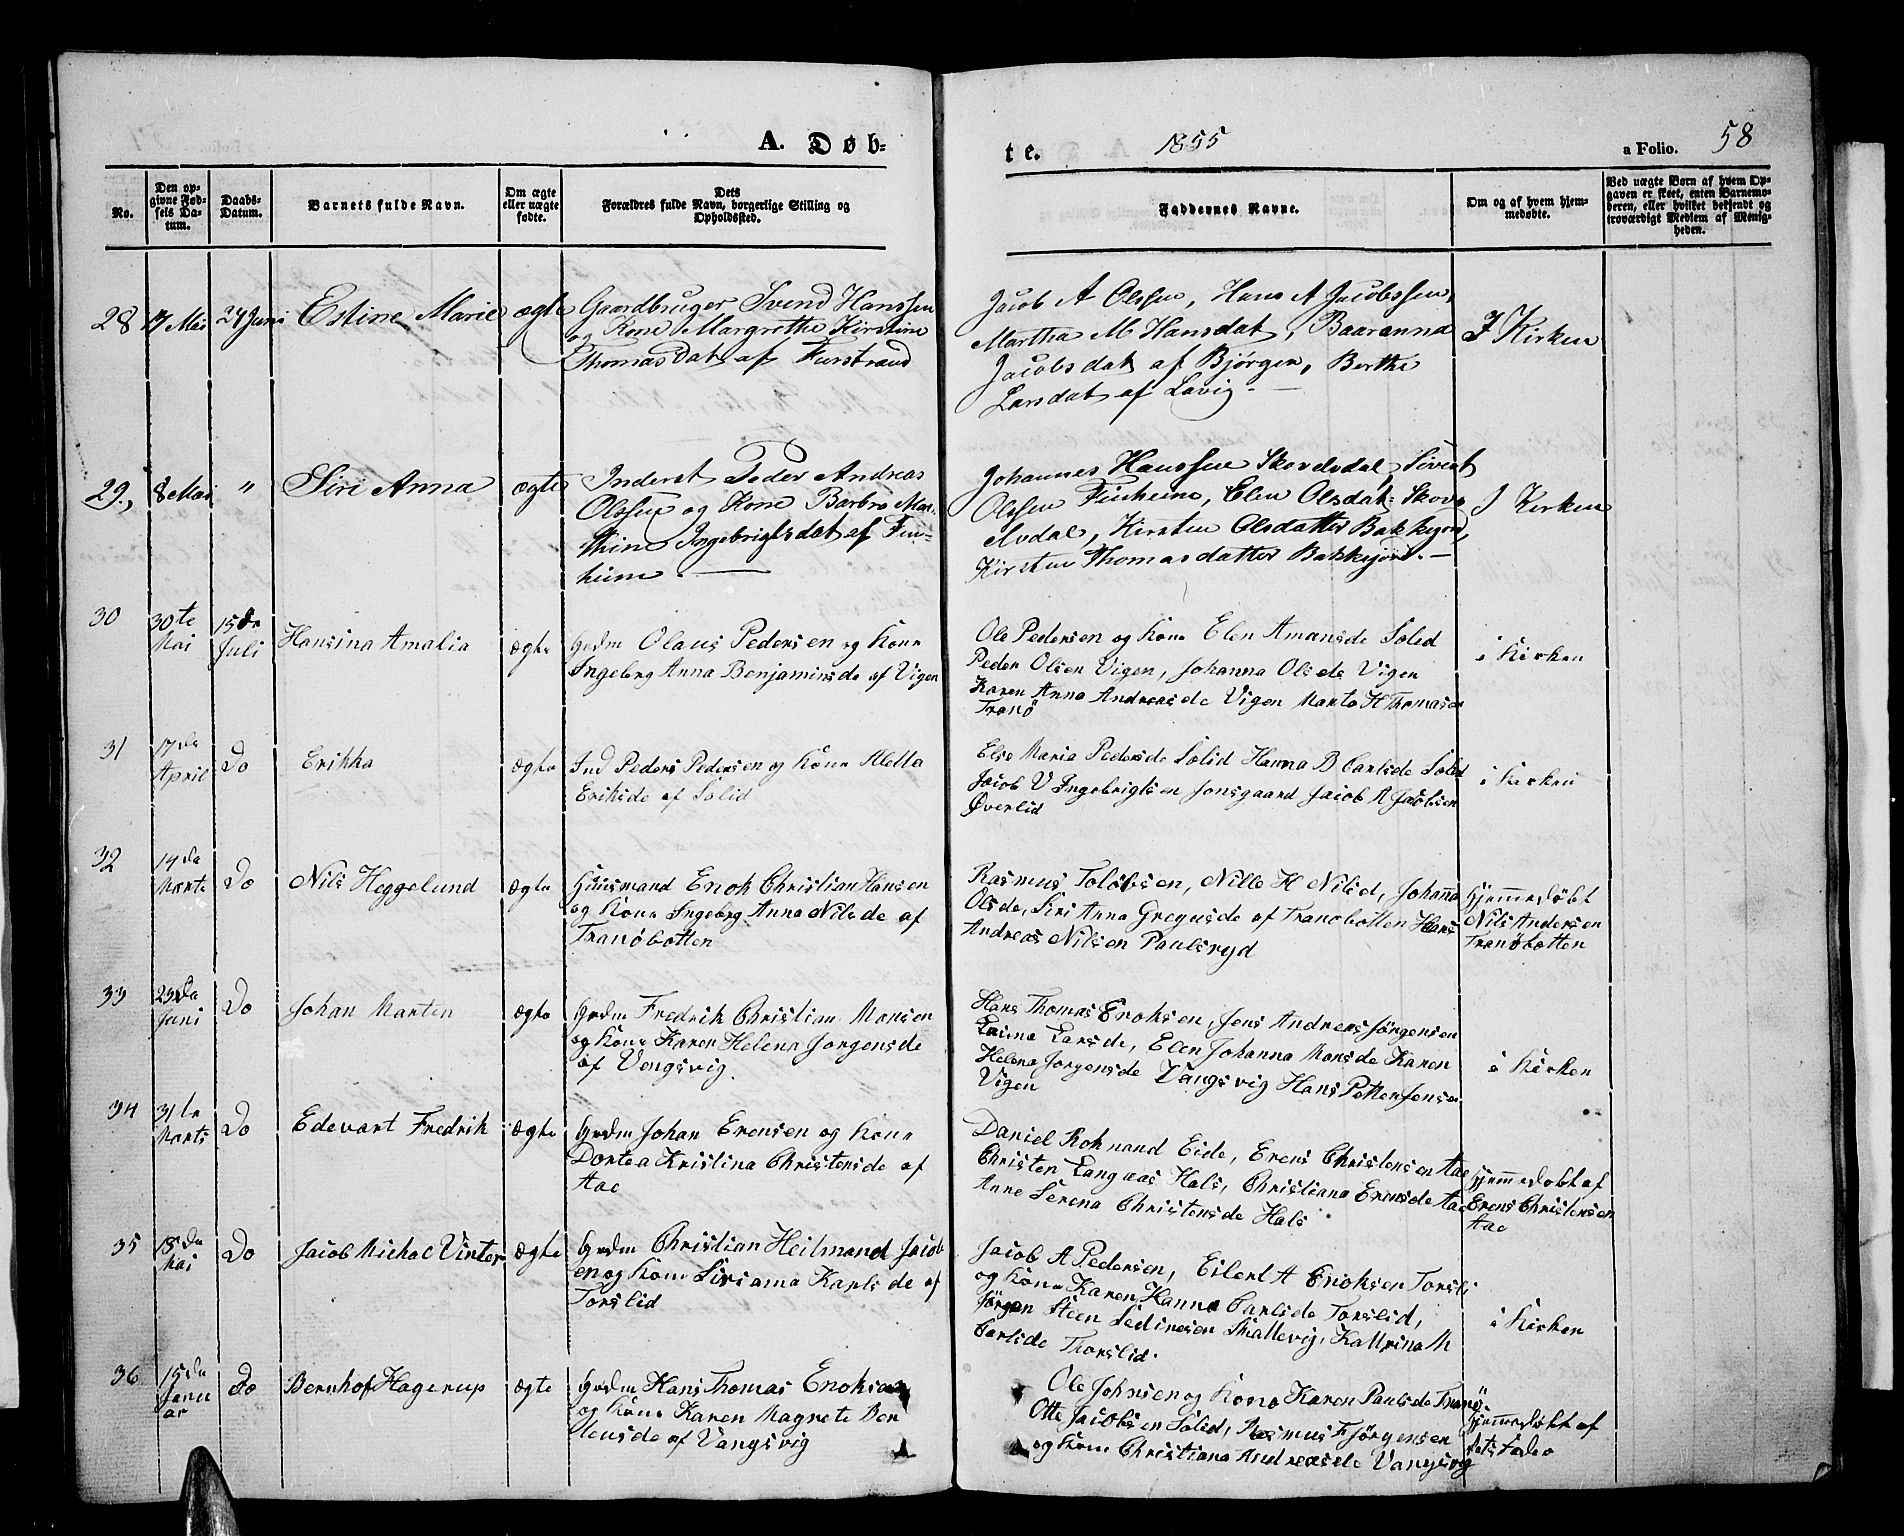 A. Døb-
te. 1855 a Folio. 58
No.
Den opgivne Fødsels Datum.
Daabs-Datum.
Barnets fulde Navn.
Om ægte eller uægte fødte.
Dets Forældres fulde Navn, borgerlige Stilling og Opholdssted.
Faddernes Navne.
Om og af hvem hjemmedøbte.
Ved uægte Børn af hvem Opgaven er skeet, enten Barnemoderen, eller hvilket bekjendt og troværdigt Medlem af Menigheden.
28 17 Mai 24 Juni Estine Marie ægte
Gaardbruger Svend Hanssen
og Kone Margrethe Kirstine
Thomasdat af Furstrand
Jacob A Olssen, Hans A Jacobssen,
Martha M Hansdat, Baaranna
Jacobsdat af Bjørgen, Berthe
Larsdat af Lavig. –
I Kirken
29., 8 Mai " Siri Anna ægte
Inderst Peder Andreas
Olssen og Kone Barbro Mar-
thine Ingebrigtsdat af Fin-
heim. —
Johannes Hanssen Skovelvdal, Sivert
Olssen Finheim, Elen Olsdat Skov-
elvdal, Kirsten Olsdatter Bakkejord,
Kirsten Thomasdatter Bakkejord. —
I Kirken
30 30te Mai 15da Juli Hansina Amalia ægte
Grdm Olaus Pedersen og Kona
Ingebrg Anna Benjaminsde af Vigen
Ole Pedersen og Kona Elen Amansde Solid
Peder Olsen Vigen, Johanna Olsde Vigen
Karen Anna Andreasde Vigen Marto H Thomasen
Tranö
i Kirken
31 17da April Do Erikka ægte
Ind Peders Pedersen og Kona Aletta
Eriksde af Solid
Else Maria Pedersde Solid Hanna B Carlsde Solid
Jacob V Ingebrigtsen Jonsgaard Jacob A Jacobsen
Øverlid
i Kirken
32 14da Marts Do Nils Heggelund ægte
Huusmand Enok Christian Hansen
og Kona Ingebrg Anna Nilsde af
Tranöbotten
Rasmus Tolobsen, Nille H Nilsd, Johanna
Olsde, Siri Anna Gregusde af Tranobotten Hans
Andreas Nilsen Paulsryd
hjemmedøbt
Nils Andersen
Tranöbotten
33 23da Juni Do Johan Marten ægte
Grdm Fredrik Christian Mansen
og Kona Karen Helena Jorgensde
af Vangsvig.
Hans Thomas Enoksen, Jens Andreas Jörgensen
Larsde, Elen Johanna Mansde Karen
Helena Jorgensde Vangsvig Hans Petter Jensen
Vigen
i Kirken
34 31te Marts Do Edevart Fredrik ægte
Grdm Johan Erensen og Kona
Dortea Kristina Christensde af
Aae
Daniel Roknand Eide, Erens Christensen Aae
Christen Langaas Hals, Christiana Erensde Aae
Anne Serena Christensde Hals
hjemmedøbt af
Erens Christensen
Aae
35 18da Mai Do Jacob Michae Vinter ægte
Grdm Christian Heilmand Jacob
en og Kona Siriama Karlsde af
Torslid
Jacob A Pedersen, Eilert A Enoksen Torsli
og Kona Karen Hanna Carlsde Torslid,
Jörgen Steen Sedinesen Skallevig, Kattrina M
Carlsde Thorslid.
i Kirken
36 15da Januar Do Bernhof Hagerup ægte
Grdm Hans Thomas Enoksen
og Kona Karen Magrete Ber
tensde af Vangsvig
Ole Johnsen og Kona Karen Paulsde Tranö.
Otte Jacobsen Solid, Rasmus F Jörgensen
og Kona Christiana Andreasde Vangsvig
hjemmedøbt af
dets Fader